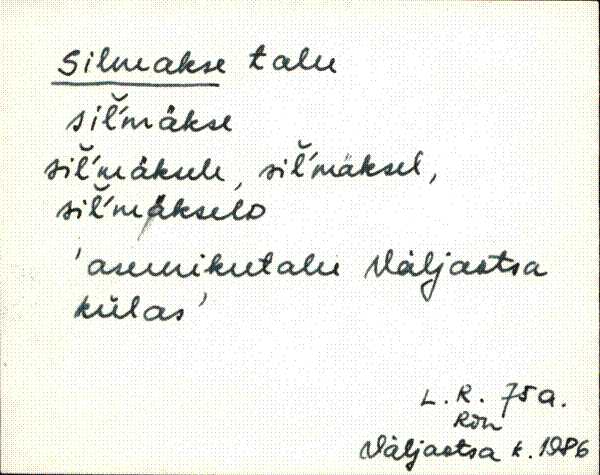 Silmakse talu
sil̆'mäkse
sil̆'mäksele, sil̆'mäksel,
sil̆'mäkselo
'asunikutalu Väljaotsa
külas'
L. R. 75 a.
Rõn
Väljaotsa k. 1986